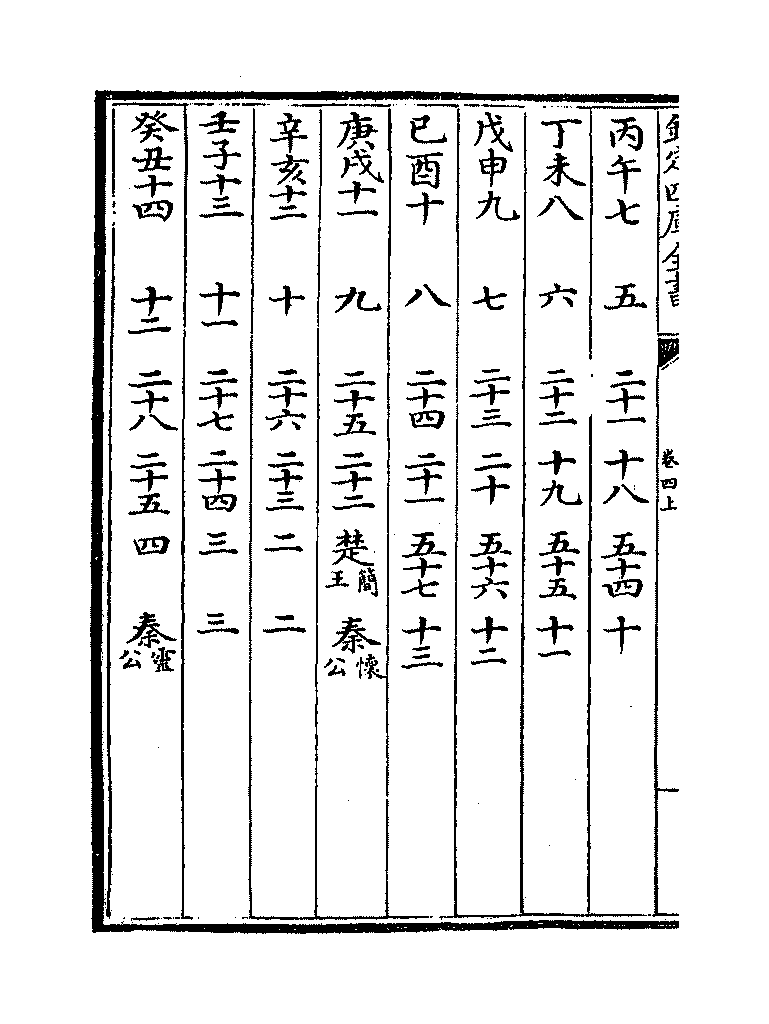 欽定四庫全書
卷四上
丙午七 五 二十一 十八 五十四 十
丁未八 六 二十二 十九 五十五 十一
戊申九 七 二十三 二十 五十六 十二
已酉十 八 二十四 二十一 五十七 十三
庚戌十一 九 二十五 二十二 楚簡王 秦懷公
辛亥十二 十 二十六 二十三 二 二
壬子十三 十一 二十七 二十四 三 三
癸丑十四 十二 二十八 二十五 四 秦靈公